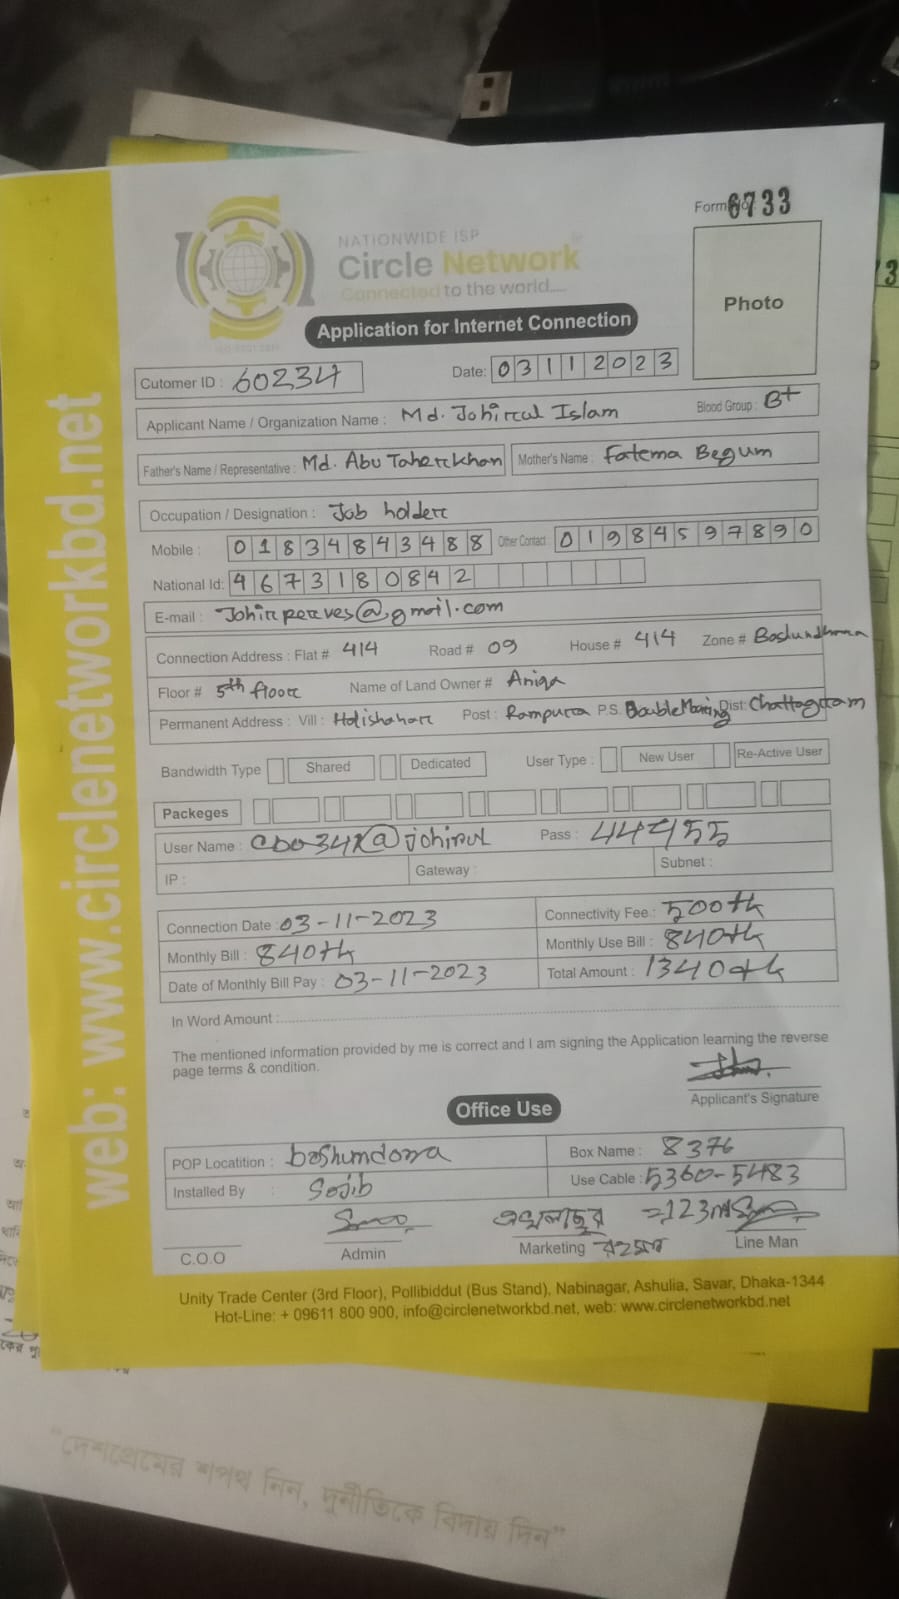 Form No: 6733
NATIONWIDE ISP
Circle Network
Connected to the world....
Photo
Application for Internet Connection
Cutomer ID : 602347
Date: 03112023
Applicant Name / Organization Name : Md. Johircul Islam
Blood Group : B+
Father's Name / Representative : Md. Abu Taherckhan
Mother's Name : Fatema Begum
Occupation / Designation : Job holderc
Mobile : 01834843488 Other Contact : 01984597890
National Id: 4673180842
E-mail : Johircperves@gmail.com
Connection Address : Flat # 414 Road # 09 House # 414 Zone # Boshundhara
Floor # 5th floorc Name of Land Owner # Aniqa
Permanent Address : Vill : Halishaharc Post : Rampurca P.S. Double Mooring Dist: Chattogram
Bandwidth Type Shared Dedicated User Type : New User Re-Active User
Packeges
User Name : @johirul Pass : 447955
IP : Gateway : Subnet :
Connection Date : 03-11-2023 Connectivity Fee : 500tk
Monthly Bill : 840tk Monthly Use Bill : 840tk
Date of Monthly Bill Pay : 03-11-2023 Total Amount : 1340tk
In Word Amount :
The mentioned information provided by me is correct and I am signing the Application learning the reverse
page terms & condition.
Applicant's Signature
Office Use
POP Locatition : boshundora Box Name : 8376
Installed By : Sojib Use Cable : 5360-5483
=123
C.O.O Admin Marketing Line Man
Unity Trade Center (3rd Floor), Pollibiddut (Bus Stand), Nabinagar, Ashulia, Savar, Dhaka-1344
Hot-Line: + 09611 800 900, info@circlenetworkbd.net, web: www.circlenetworkbd.net
web: www.circlenetworkbd.net
"দেশপ্রেমের শপথ নিন, দুর্নীতিকে বিদায় দিন"